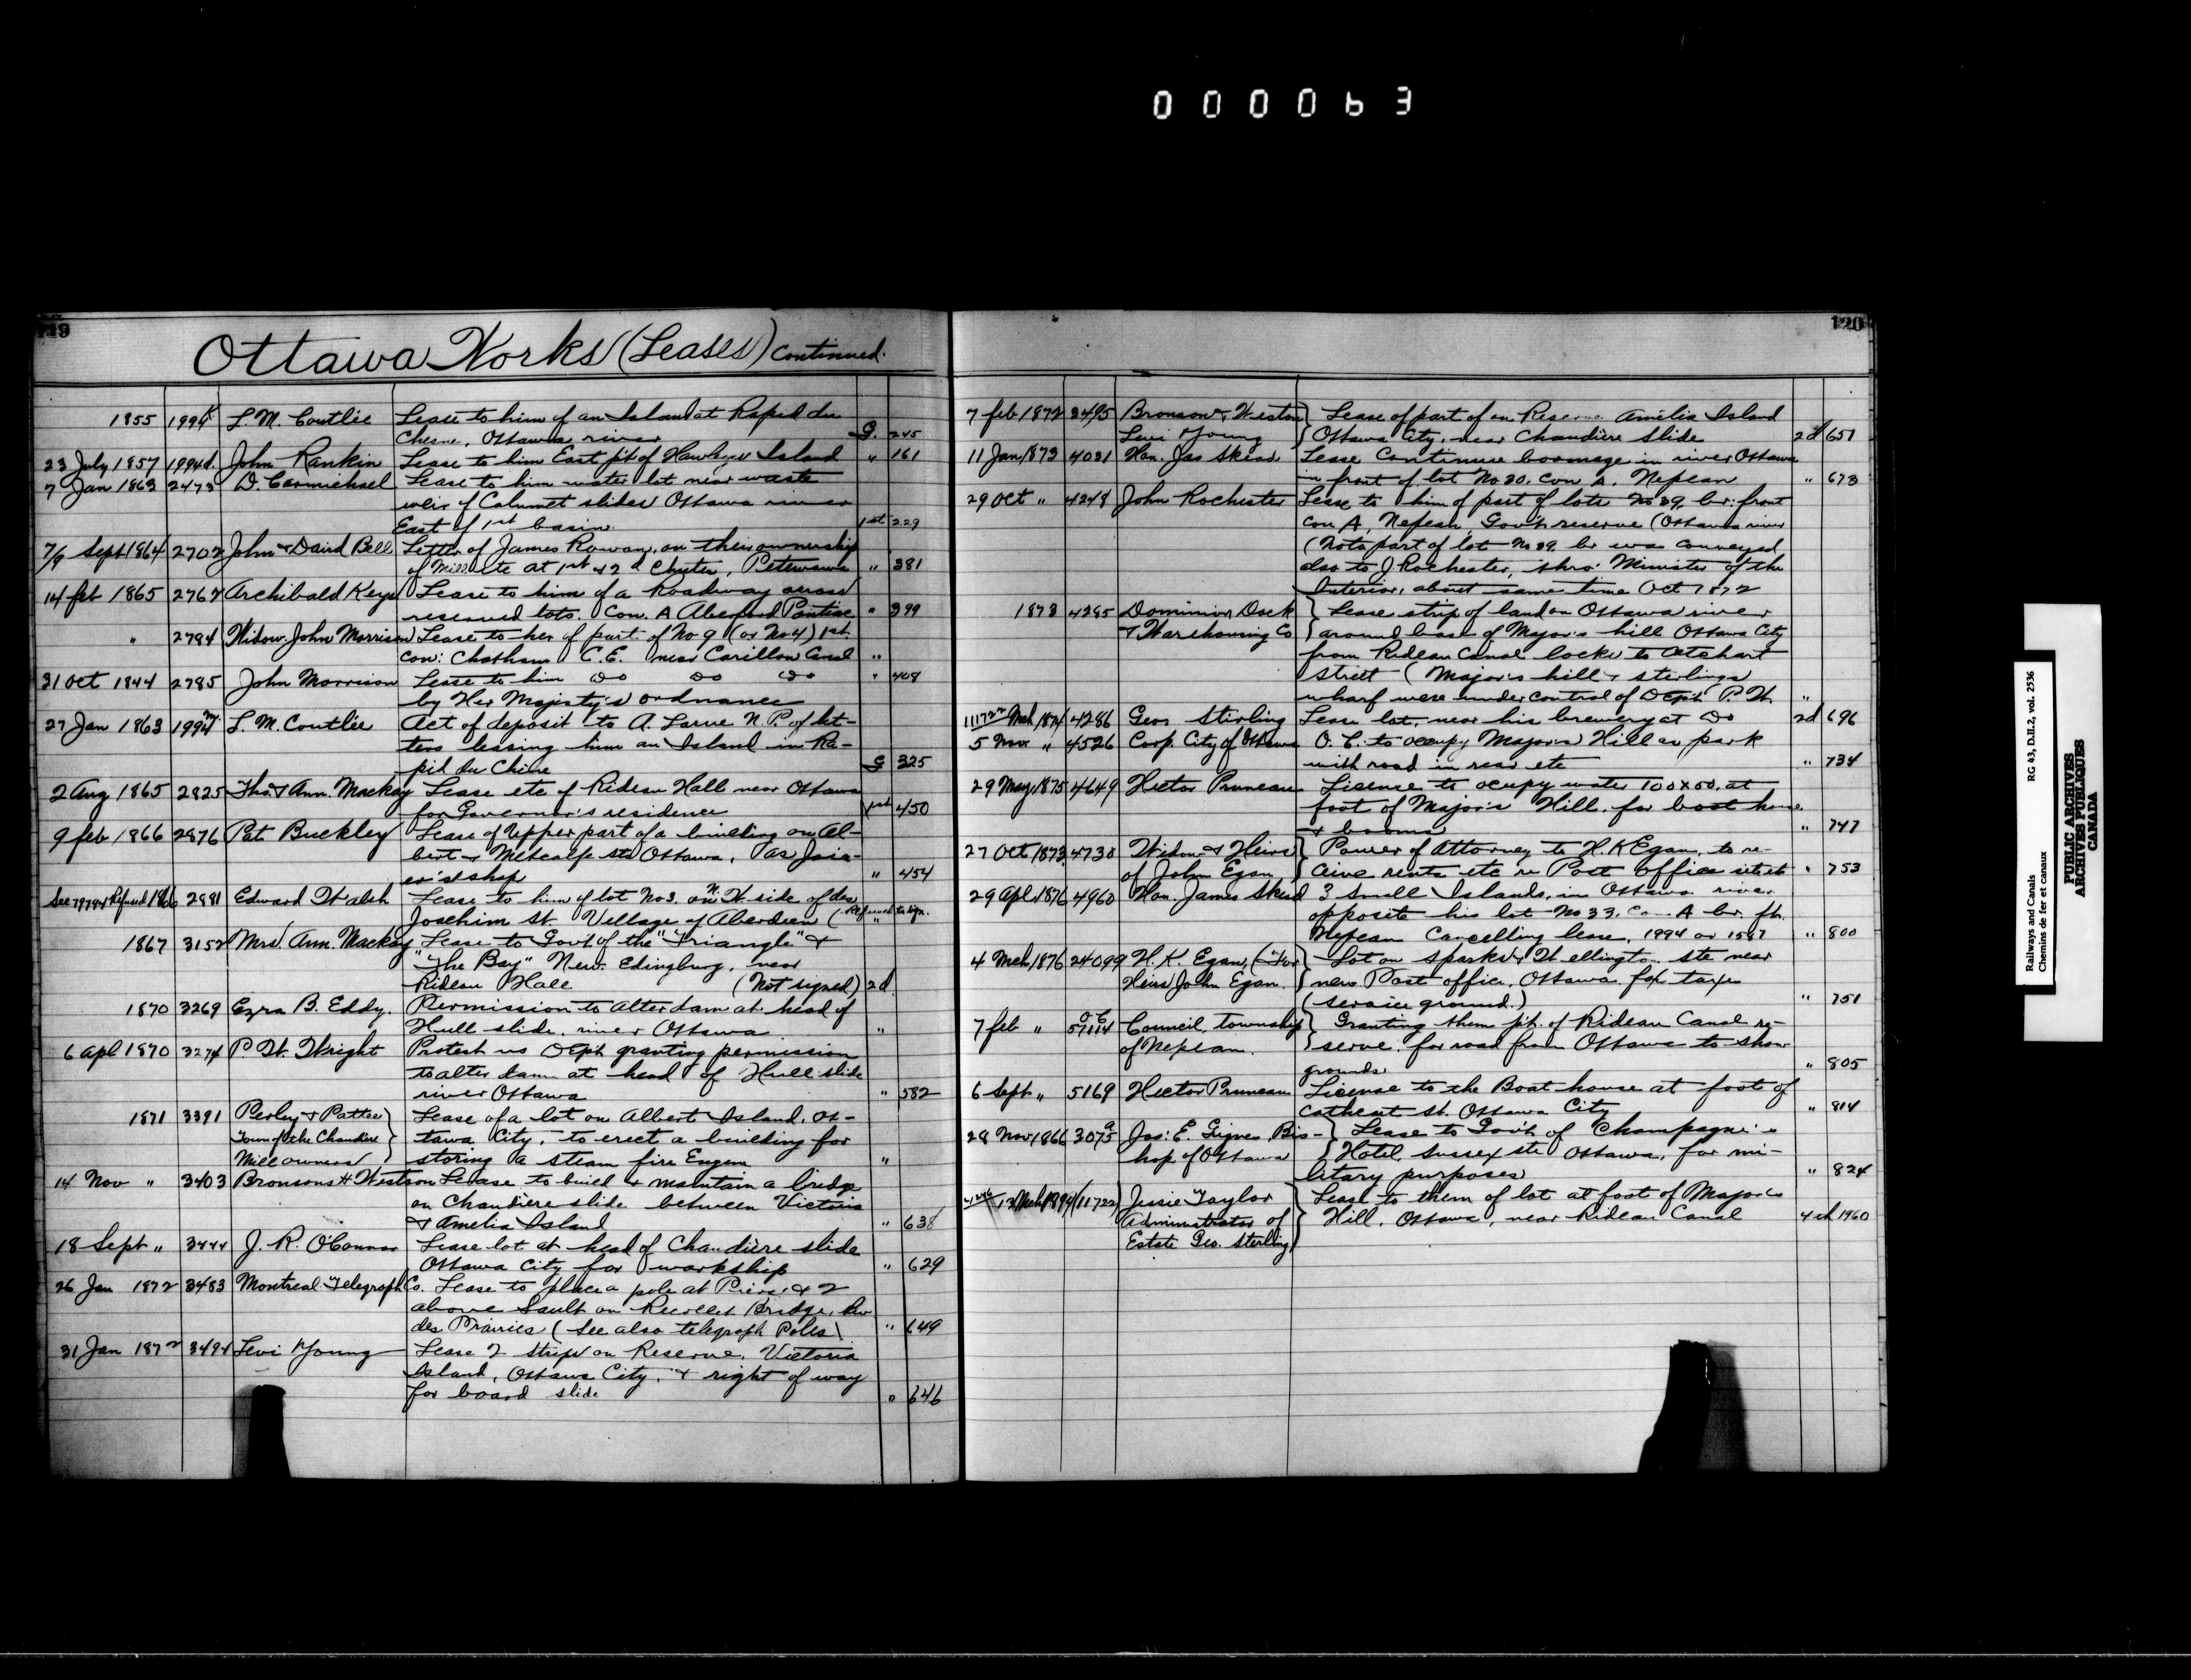 000063
119
Ottawa Works (Leases) continued.
1855 1994 L. M. Coutlée Lease to him of an Island at Rapid du
Chesne, Ottawa river G. 245
23 July 1857 1994 John Rankin Lease to him East pt of Hawleys Island " 161
7 Jan 1863 2473 D. Carmichael Lease to him water lot near waste
weir of Calumet slides Ottawa river
East of 1st basin. 1st 229
7/9 Sept 1864 2702 John & David Bell Letter of James Rowan, on their ownership
of Mill site at 1st & 2d Chutes, Petewawa " 381
14 feb 1865 2762 Archibald Keys Lease to him of a Roadway across
reserved lots. Con. A Aberford Pontiac " 399
" 2784 Widow John Morrison Lease to her of part of No 9 (or No 4) 1st
con: Chatham C.E. near Carillon Canal "
31 Oct 1844 2785 John Morrison Lease to him Do Do Do " 408
by Her Majesty's ordnance
27 Jan 1863 1994 L. M. Coutlée Act of deposit to A. Larue N. P. of let-
ters leasing him an Island in Ra-
pid du Chine G 325
2 Aug 1865 2825 Thos & Ann. Mackay Lease etc of Rideau Hall near Ottawa
for Governor's residence 1st 450
9 feb 1866 2876 Pat Buckley Lease of Upper part of a building on Al-
bert & Metcalfe sts Ottawa, as Join-
er's shop " 454
See 79794 Refused 1866 2881 Edward Walsh Lease to him of lot No 3. on N. W. side of des
Joachim st. Village of Aberdeen (Refused to sign. "
1867 3152 Mrs Ann. Mackay Lease to Govt of the "Triangle" &
"The Bay" New Edingburg, near
Rideau Hall (Not signed) 2d
1870 3269 Ezra B. Eddy. Permission to alter dam at head of
Hull slide. river Ottawa "
6 apl 1870 3274 P. W. Wright Protest vs Dept granting permission
to alter dam at head of Hull slide
river Ottawa " 582
1871 3391 Perley & Pattee Lease of a lot on Albert Island, Ot-
Town of the Chaudiere tawa City, to erect a building for
Mill owners storing a steam fire Engine "
14 Nov " 3403 Bronsons & Weston Lease to build & maintain a bridge
on Chaudière slide between Victoria
& Amelia Island " 638
18 Sept " 3444 J. R. O'Connor Lease lot at head of Chaudière slide
Ottawa City for workship " 629
26 Jan 1872 3483 Montreal Telegraph Co. Lease to place a pole at Piers 1 & 2
above Sault on Recollet Bridge, Riv
des Prairies (See also telegraph Poles) " 649
31 Jan 1872 3494 Levi Young Lease 2 strips on Reserve, Victoria
Island, Ottawa City, & right of way
for board slide " 646
120
7 feb 1872 3495 Bronson & Weston Lease of part of on Reserve Amelia Island
Levi Young Ottawa City, near Chaudière Slide 2d 651
11 Jan 1873 4031 Hon. Jas Skead Lease Continue boomage in river Ottawa
in front of lot No 30, con A. Nepean " 673
29 Oct " 4248 John Rochester Lease to him of part of lots No 39, br: front
con A, Nepean, Gov't reserve (Ottawa river
(Nota part of lot No 39 br was conveyed
also to J Rochester, thro' Minister of the
Interior, about same time Oct 1872
1873 4285 Dominion Dock Lease strip of land on Ottawa river
& Warehousing Co around base of Major's hill Ottawa City
from Rideau Canal locks to
street (Major's hill & sterlings
wharf were under control of Dept P. W. "
Mch 1874 4286 Geo. Stirling Lease lot, near his brewery at Do 2d 696
5 Nov " 4526 Corp. City of Ottawa O. C. to occupy Major's Hill as park
with road in rear etc " 734
29 May 1875 4649 Hector Pruneau License to occupy water 100 x 50, at
foot of Major's Hill. for boat house
& booms " 747
27 Oct 1873 4730 Widow & Heirs Power of Attorney to H. K Egan, to re-
of John Egan ceive rents etc re Post office site st " 753
29 Apl 1876 4960 Hon. James Skead 3 Small Islands, in Ottawa river
opposite his lot No 33, Con. A br. ft.
Nepean Cancelling lease, 1994 or 1587 " 800
4 Mch 1876 24099 H. K. Egan, (For Lot on Sparks & Wellington sts near
Heirs John Egan. new Post office, Ottawa for taxes
(service ground.) " 751
7 feb " O C 57114 Council, township Granting them pt. of Rideau Canal re-
of Nepean. serve. for road from Ottawa to show
grounds " 805
6 Sept " 5169 Hector Pruneau License to the Boat-house at foot of
Cathcart st. Ottawa City " 814
28 Nov 1866 3075a Jos: E. Gigues Bis- Lease to Govt of Champagne's
hop of Ottawa Hotel, Sussex sts Ottawa, for mi-
litary purposes " 824
13 Mch 1894 (11722) Jessie Taylor Lease to them of lot at foot of Major's
Administrator of Hill, Ottawa, near Rideau Canal 4th 1960
Estate Geo. Sterling
Railways and Canals RG 43, D.II.2, vol. 2536
Chemins de fer et canaux
PUBLIC ARCHIVES
ARCHIVES PUBLIQUES
CANADA